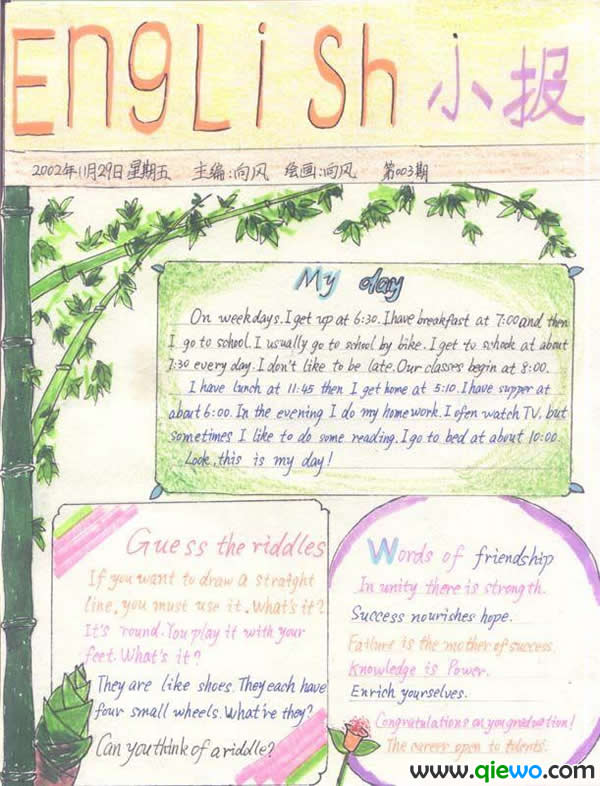 English 小报
2002年11月29日 星期五 主编:向风 绘画:向风 第003期
My day
On weekdays. I get up at 6:30. I have breakfast at 7:00 and then
I go to school. I usually go to school by bike. I get to schook at about
7:30 every day. I don't like to be late. Our classes begin at 8:00.
I have lunch at 11:45 then I get home at 5:10. I have supper at
about 6:00. In the evening I do my homework. I ofen watch TV, but
sometimes I like to do some reading. I go to bed at about 10:00.
Look, this is my day!
Guess the riddles
If you want to draw a straight
line, you must use it. What's it?
It's round. You play it with your
feet. What's it?
They are like shoes. They each have
four small wheels. What're they?
Can you think of a riddle?
Words of friendship
In unity there is strength.
Success nourishes hope.
Failure is the mother of success.
Knowledge is Power.
Enrich yourselves.
Congratulations on you graduation!
The career open to talents.
www.qiewo.com